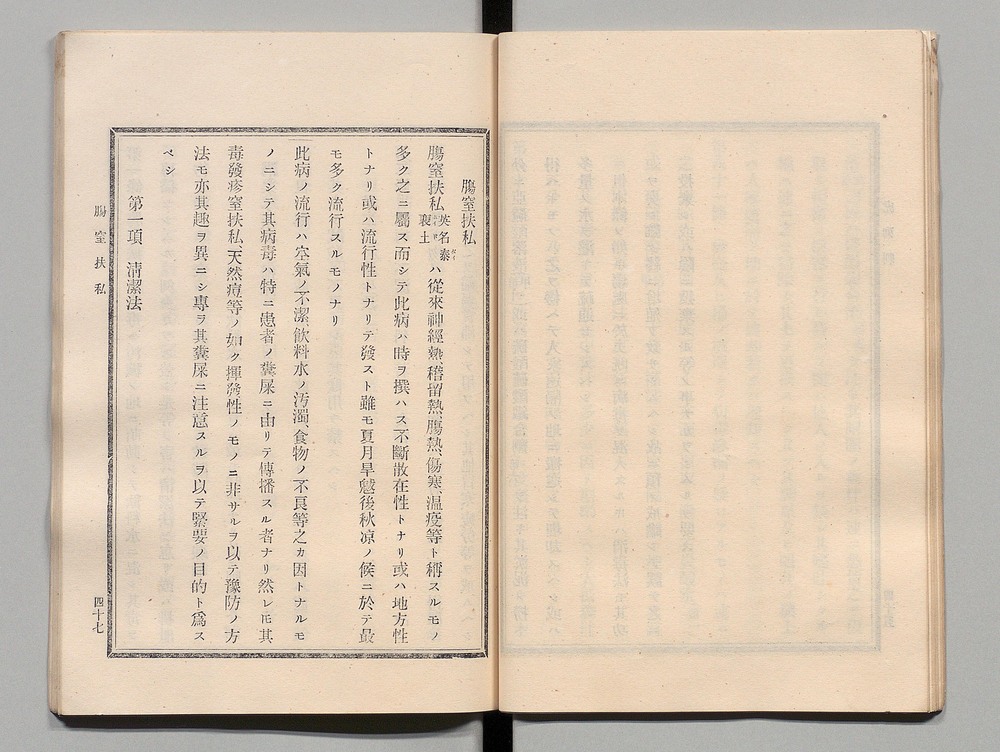 膓窒扶私
膓窒扶私英名泰表土ハ從來神經熱、稽留熱、膓熱、傷寒、温疫等ト稱スルモノ
多ク之ニ屬ス而シテ此病ハ時ヲ撰ハス不斷散在性トナリ或ハ地方性
トナリ或ハ流行性トナリテ發スト雖モ夏月旱魃後秋凉ノ候ニ於テ最
モ多ク流行スルモノナリ
此病ノ流行ハ空氣ノ不潔飮料水ノ汚濁、食物ノ不良等之カ因トナルモ
ノニシテ其病毒ハ特ニ患者ノ糞屎ニ由リテ傳播スル者ナリ然レ𪜈其
毒發疹窒扶私、天然痘等ノ如ク揮發性ノモノニ非サルヲ以テ豫防ノ方
法モ亦其趣ヲ異ニシ專ヲ其糞屎ニ注意スルヲ以テ緊要ノ目的ト爲ス
ベシ
第一項 淸潔法
膓窒扶私
四十七